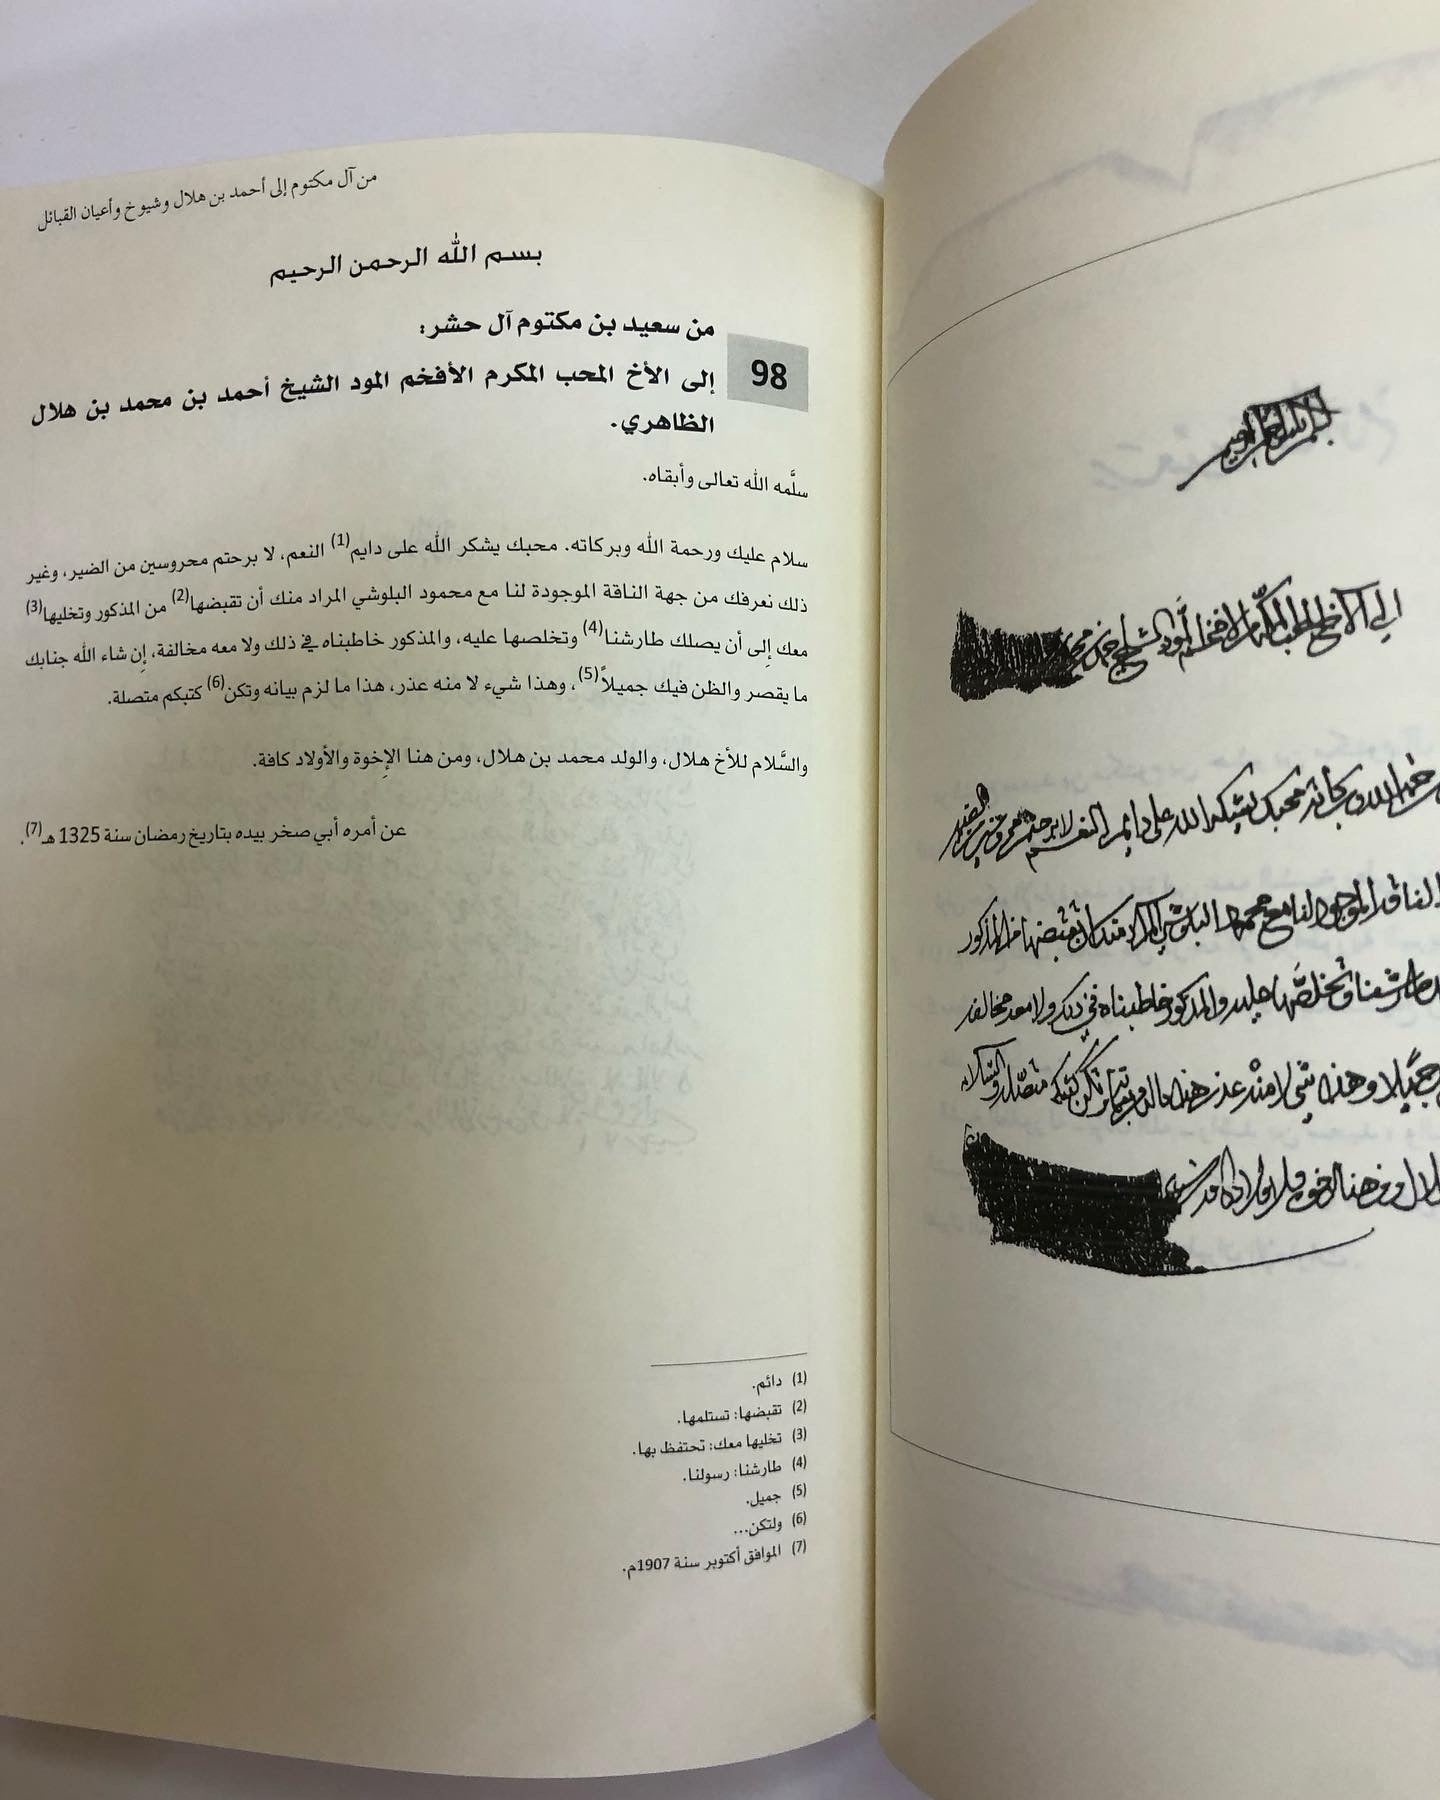 من آل مكتوم إلى أحمد بن هلال وشيوخ وأعيان القبائل
بسم الله الرحمن الرحيم
98
من سعيد بن مكتوم آل حشر:
إلى الأخ المحب المكرم الأفخم المود الشيخ أحمد بن محمد بن هلال
الظاهري.
سلَّمه الله تعالى وأبقاه.
سلام عليك ورحمة الله وبركاته. محبك يشكر الله على دايم(1) النعم، لا برحتم محروسين من الضير، وغير
ذلك نعرفك من جهة الناقة الموجودة لنا مع محمود البلوشي المراد منك أن تقبضها(2) من المذكور وتخليها(3)
معك إلى أن يصلك طارشنا(4) وتخلصها عليه، والمذكور خاطبناه في ذلك ولا معه مخالفة، إن شاء الله جنابك
ما يقصر والظن فيك جميلاً(5)، وهذا شيء لا منه عذر، هذا ما لزم بيانه وتكن(6) كتبكم متصلة.
والسَّلام للأخ هلال، والولد محمد بن هلال، ومن هنا الإخوة والأولاد كافة.
عن أمره أبي صخر بيده بتاريخ رمضان سنة 1325 هـ(7).
(1) دائم.
(2) تقبضها: تستلمها.
(3) تخليها معك: تحتفظ بها.
(4) طارشنا: رسولنا.
(5) جميل.
(6) ولتكن...
(7) الموافق أكتوبر سنة 1907م.
إلى الأخ المحب المكرم الأفخم المود الشيخ أحمد بن محمد
محبك يشكر الله على دايم النعم لا برحتم محروسين
الناقة الموجودة لنا مع محمود البلوشي المراد منك أن تقبضها من المذكور
طارشنا وتخلصها عليه والمذكور خاطبناه في ذلك ولا معه مخالفة
جميلا وهذا شي لا منه عذر هذا ما لزم بيانه وتكن كتبكم متصلة والسلام
هلال ومن هنا الاخوة والاولاد كافة